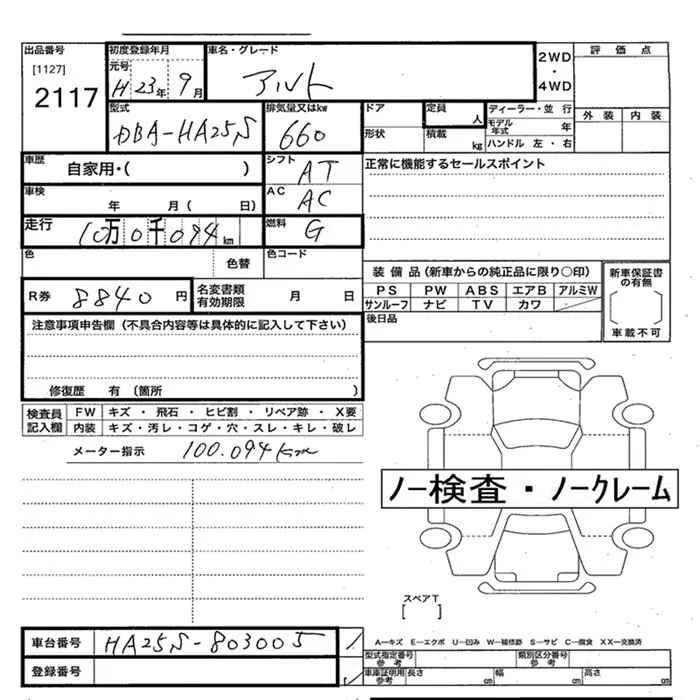 出品番号 初度登録年月 車名・グレード 2WD・4WD 評価点
[1127] 元号
2117 H 23年 9月 アルト
型式 排気量又はkw ドア 定員 人 ディーラー・並行 外装 内装
DBA-HA25S 660 形状 積載 kg モデル年式 年
ハンドル 左・右
車歴 自家用・( ) シフト AT 正常に機能するセールスポイント
車検 年 月 ( 日) AC AC
走行 10万 0千 094 km 燃料 G
色 色替 色コード
R券 8840 円 名変書類有効期限 月 日
装備品 (新車からの純正品に限り○印) 新車保証書の有無
PS PW ABS エアB アルミW
サンルーフ ナビ TV カワ 車載不可
注意事項申告欄 (不具合内容等は具体的に記入して下さい) 後日品
修復歴 有 (箇所 )
検査員記入欄 FW キズ・飛石・ヒビ割・リペア跡・X要
内装 キズ・汚レ・コゲ・穴・スレ・キレ・破レ
メーター指示 100.094km
ノー検査・ノークレーム
スペアT
[ ]
車台番号 HA25S-803005
登録番号
A―キズ E―エクボ U―凹み W―補修跡 S―サビ C―腐食 XX―交換済
型式指定番号 参考 類別区分番号 参考
車庫証明用 参考 長さ cm 幅 cm 高さ cm